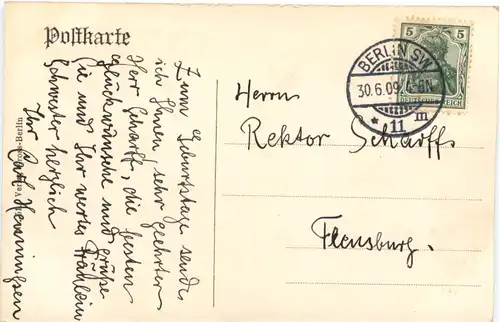 Postkarte
Zum Geburtstage sende
ich Ihnen, sehr geehrter
Herr Scharff, die besten
Glückwünsche und grüße
Sie und Ihr wertes Fräulein
Schwester herzlich
Ihr Carl Henningsen
5 5
DEUTSCHES REICH
BERLIN SW.
30.6.09
11
m
Herrn
Rektor Scharff
Flensburg.
Berlin